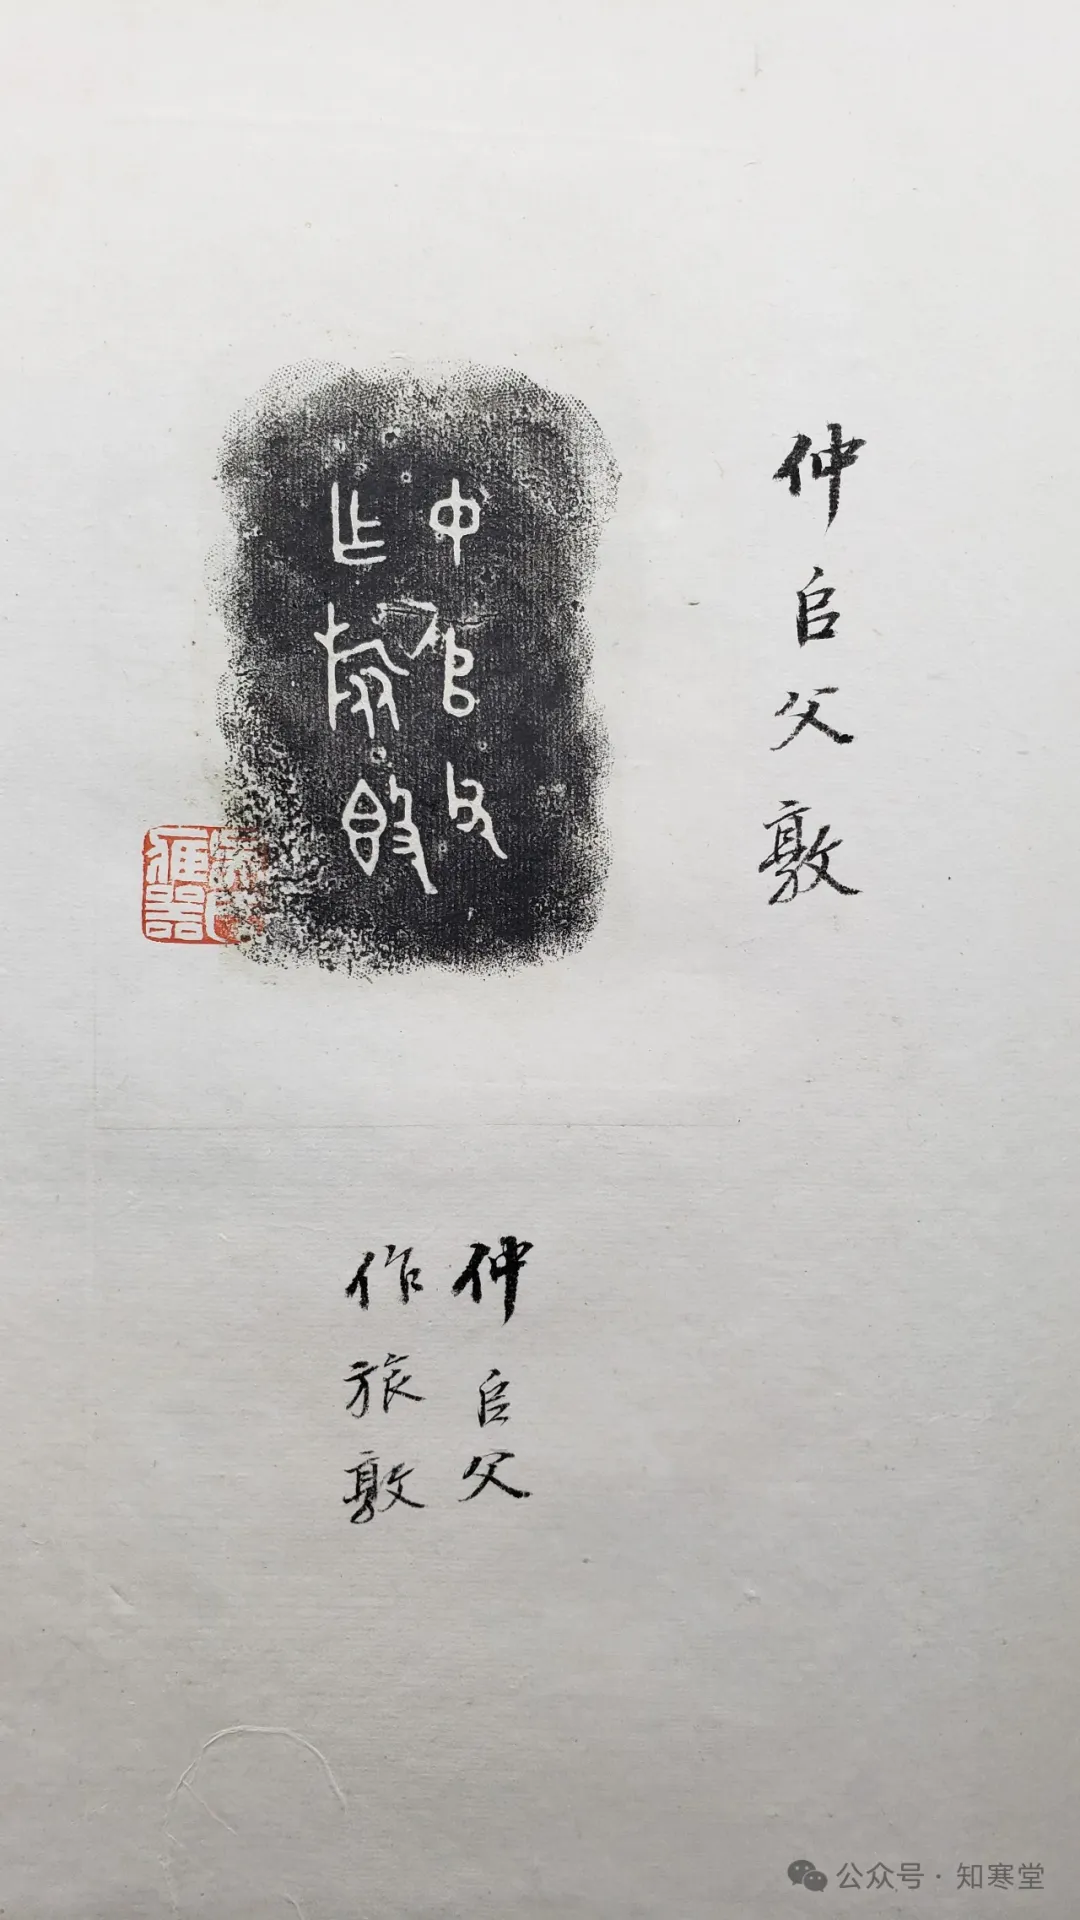 仲父敦
中父
乍旅𣪘
仲父
作旅敦
公众号·知寒堂